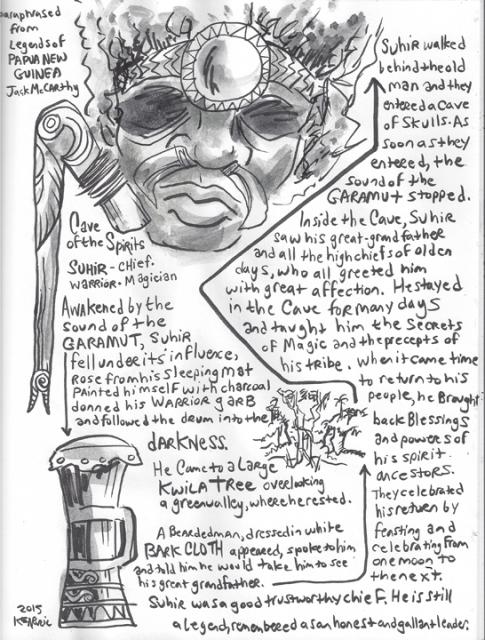 paraphrased
from
Legends of
PAPUA NEW
GUINEA
Jack McCarthy
Cave
of the Spirits
SUHIR - CHIEF.
WARRIOR. Magician
Awakened by the
sound of the
GARAMUT, Suhir
fell under its influence,
Rose from his sleeping mat
Painted himself with charcoal
donned his WARRIOR garb
and followed the drum into the
darkness.
He Came to a Large
KWILA TREE overlooking
a green valley, where he rested.
A Bearded man, dressed in white
BARK CLOTH appeared, spoke to him
and told him he would take him to see
his great grandfather.
Suhir walked
behind the old
man and they
entered a Cave
of Skulls. As
soon as they
entered, the
sound of the
GARAMUT stopped.
Inside the Cave, Suhir
saw his great-grandfather
and all the high chiefs of olden
days, who all greeted him
with great affection. He stayed
in the Cave for many days
and taught him the Secrets
of Magic and the precepts of
his tribe. When it came time
to return to his
people, he Brought
back Blessings
and powers of
his spirit
ancestors.
They celebrated
his return by
feasting and
celebrating from
one moon to
the next.
Suhir was a good trustworthy chief. He is still
a legend, remembered as an honest and gallant leader.
2015